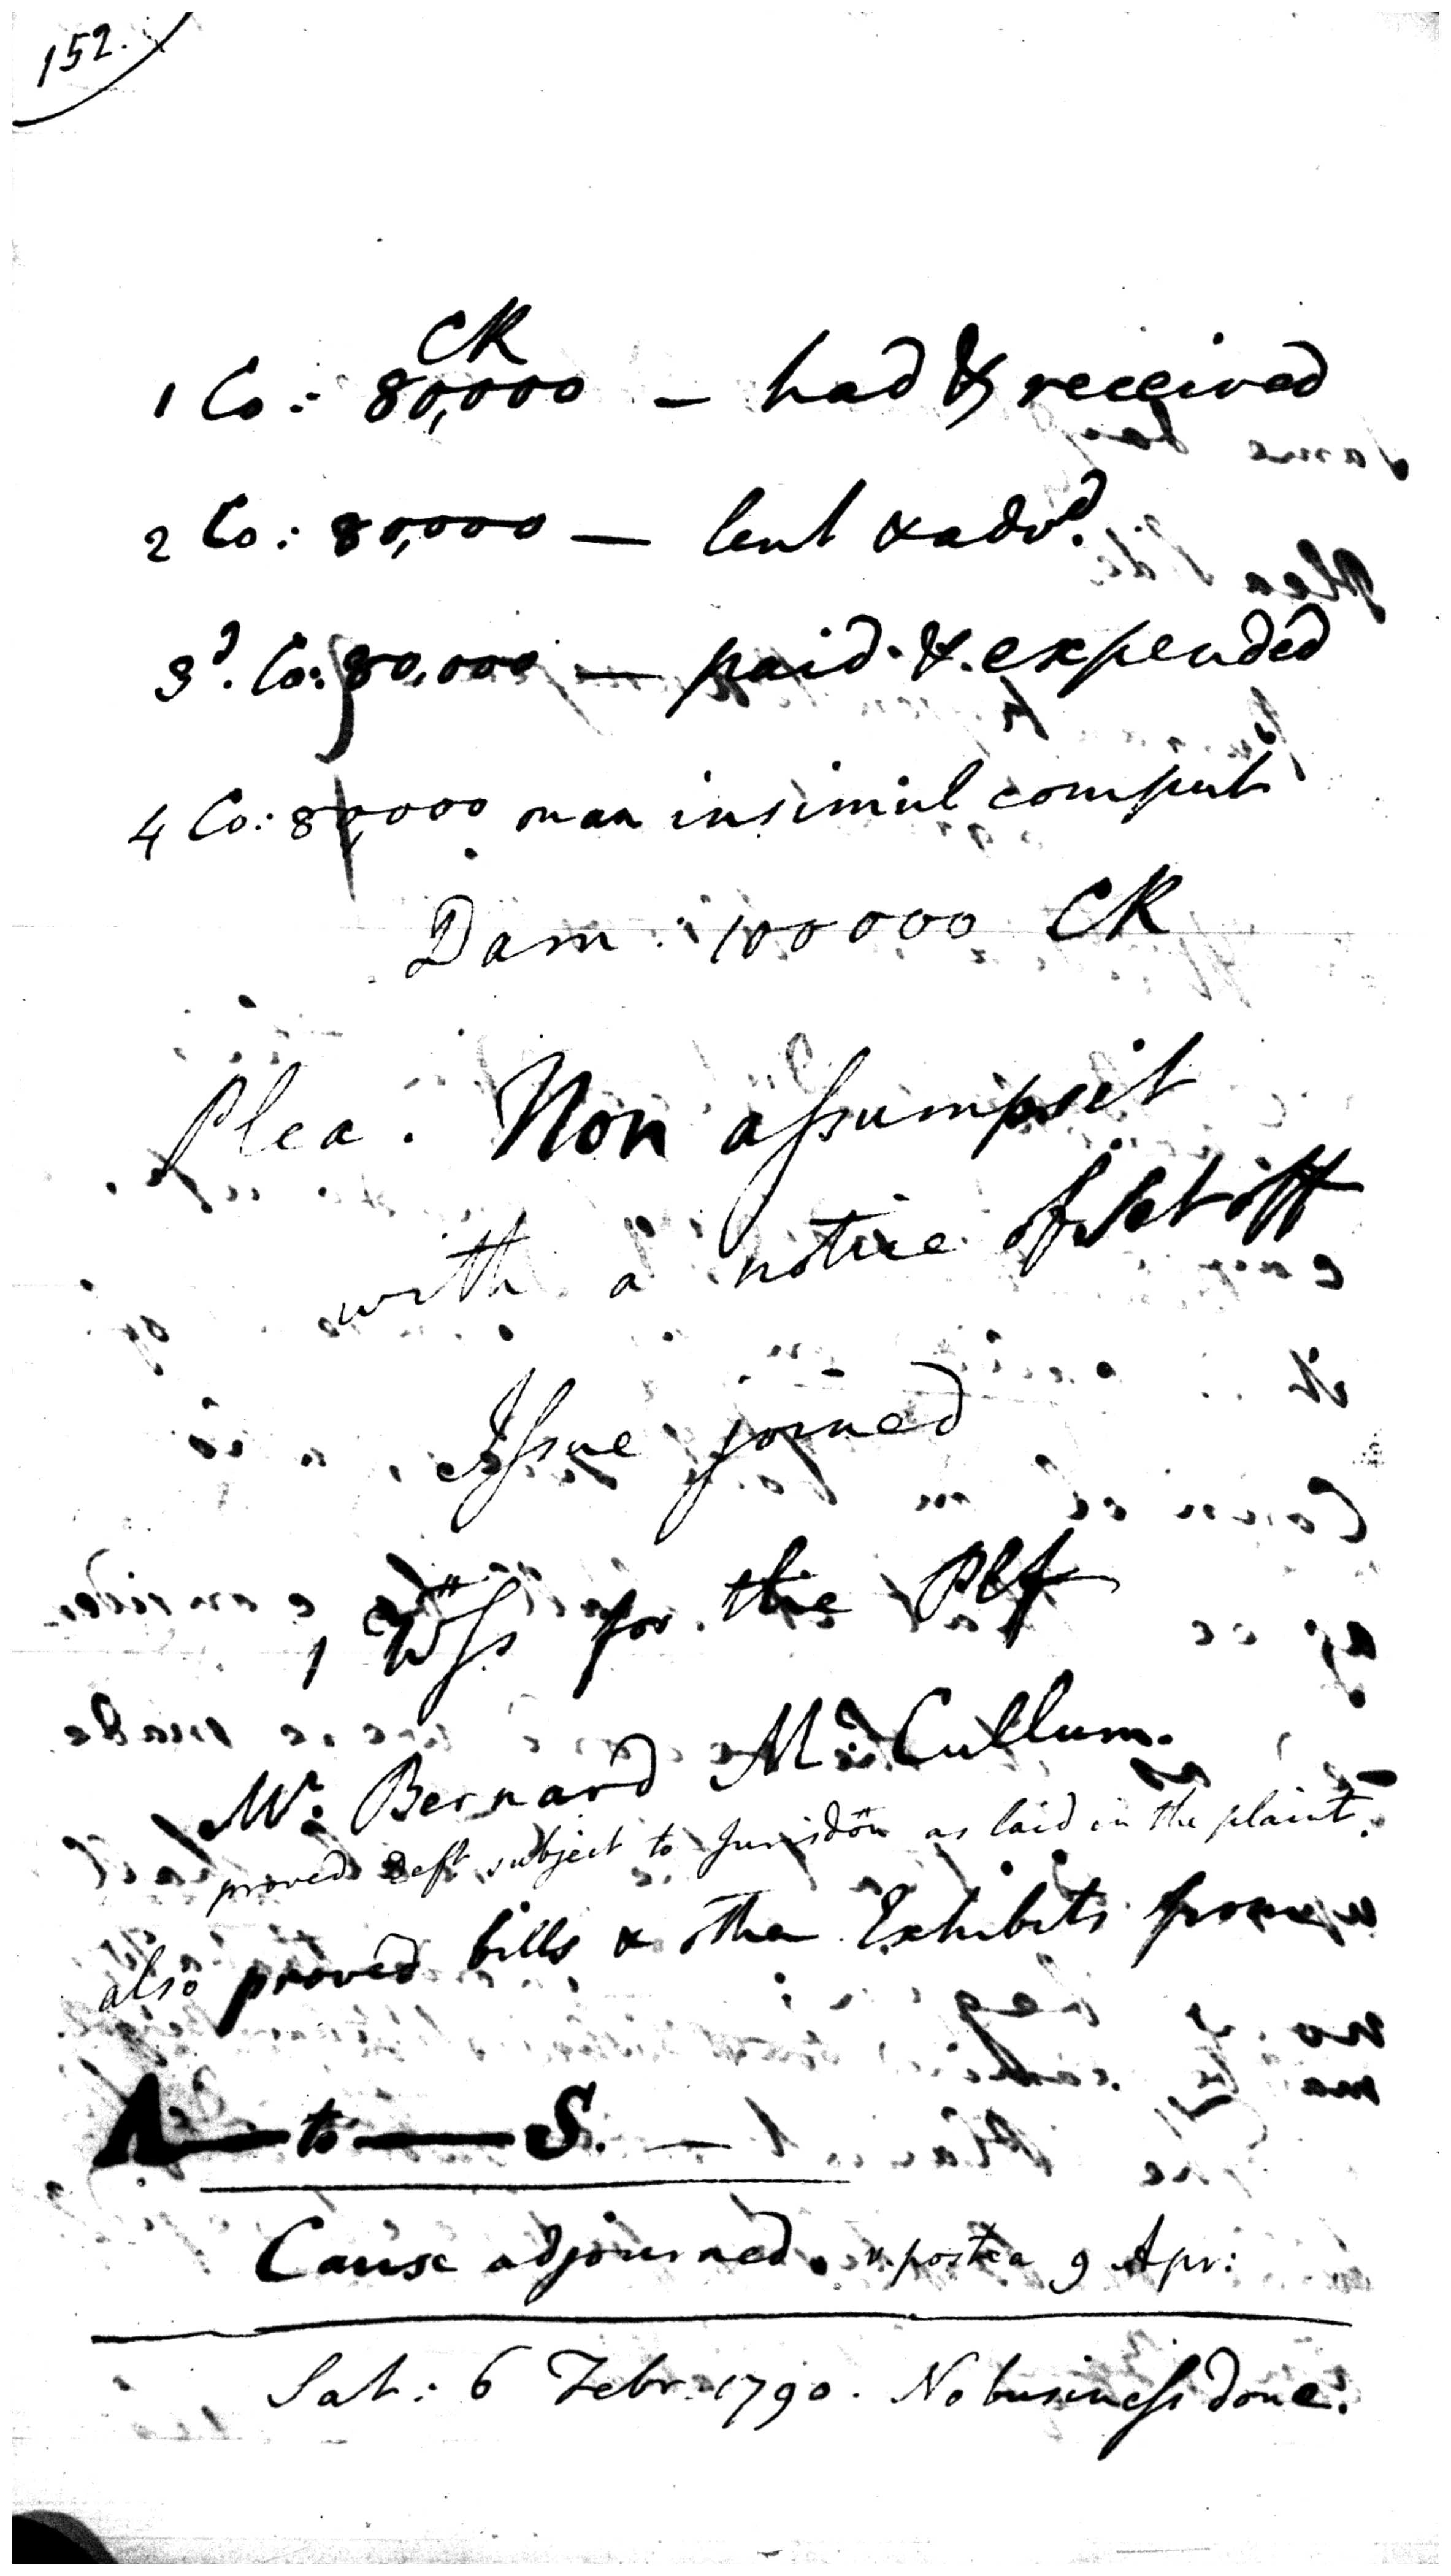 152.
CR
1 Co: 80,000 — had & received
2 Co: 80,000 — lent & advd.
3d. Co: 80,000 — paid & expended
4 Co: 80,000 on an insimul comput
Dam: 100000 CR
Plea. Non assumpsit
with a notice of set off
Issue joined
1 Wss for the Plf
Mr. Bernard Mc. Cullum.
proved Deft subject to Jurisdon as laid in the plaint.
also proved bills & other Exhibits from
A — to — S. —
Cause adjourned. v. postea 9 Apr:
Sat: 6 Febr. 1790. No business done.